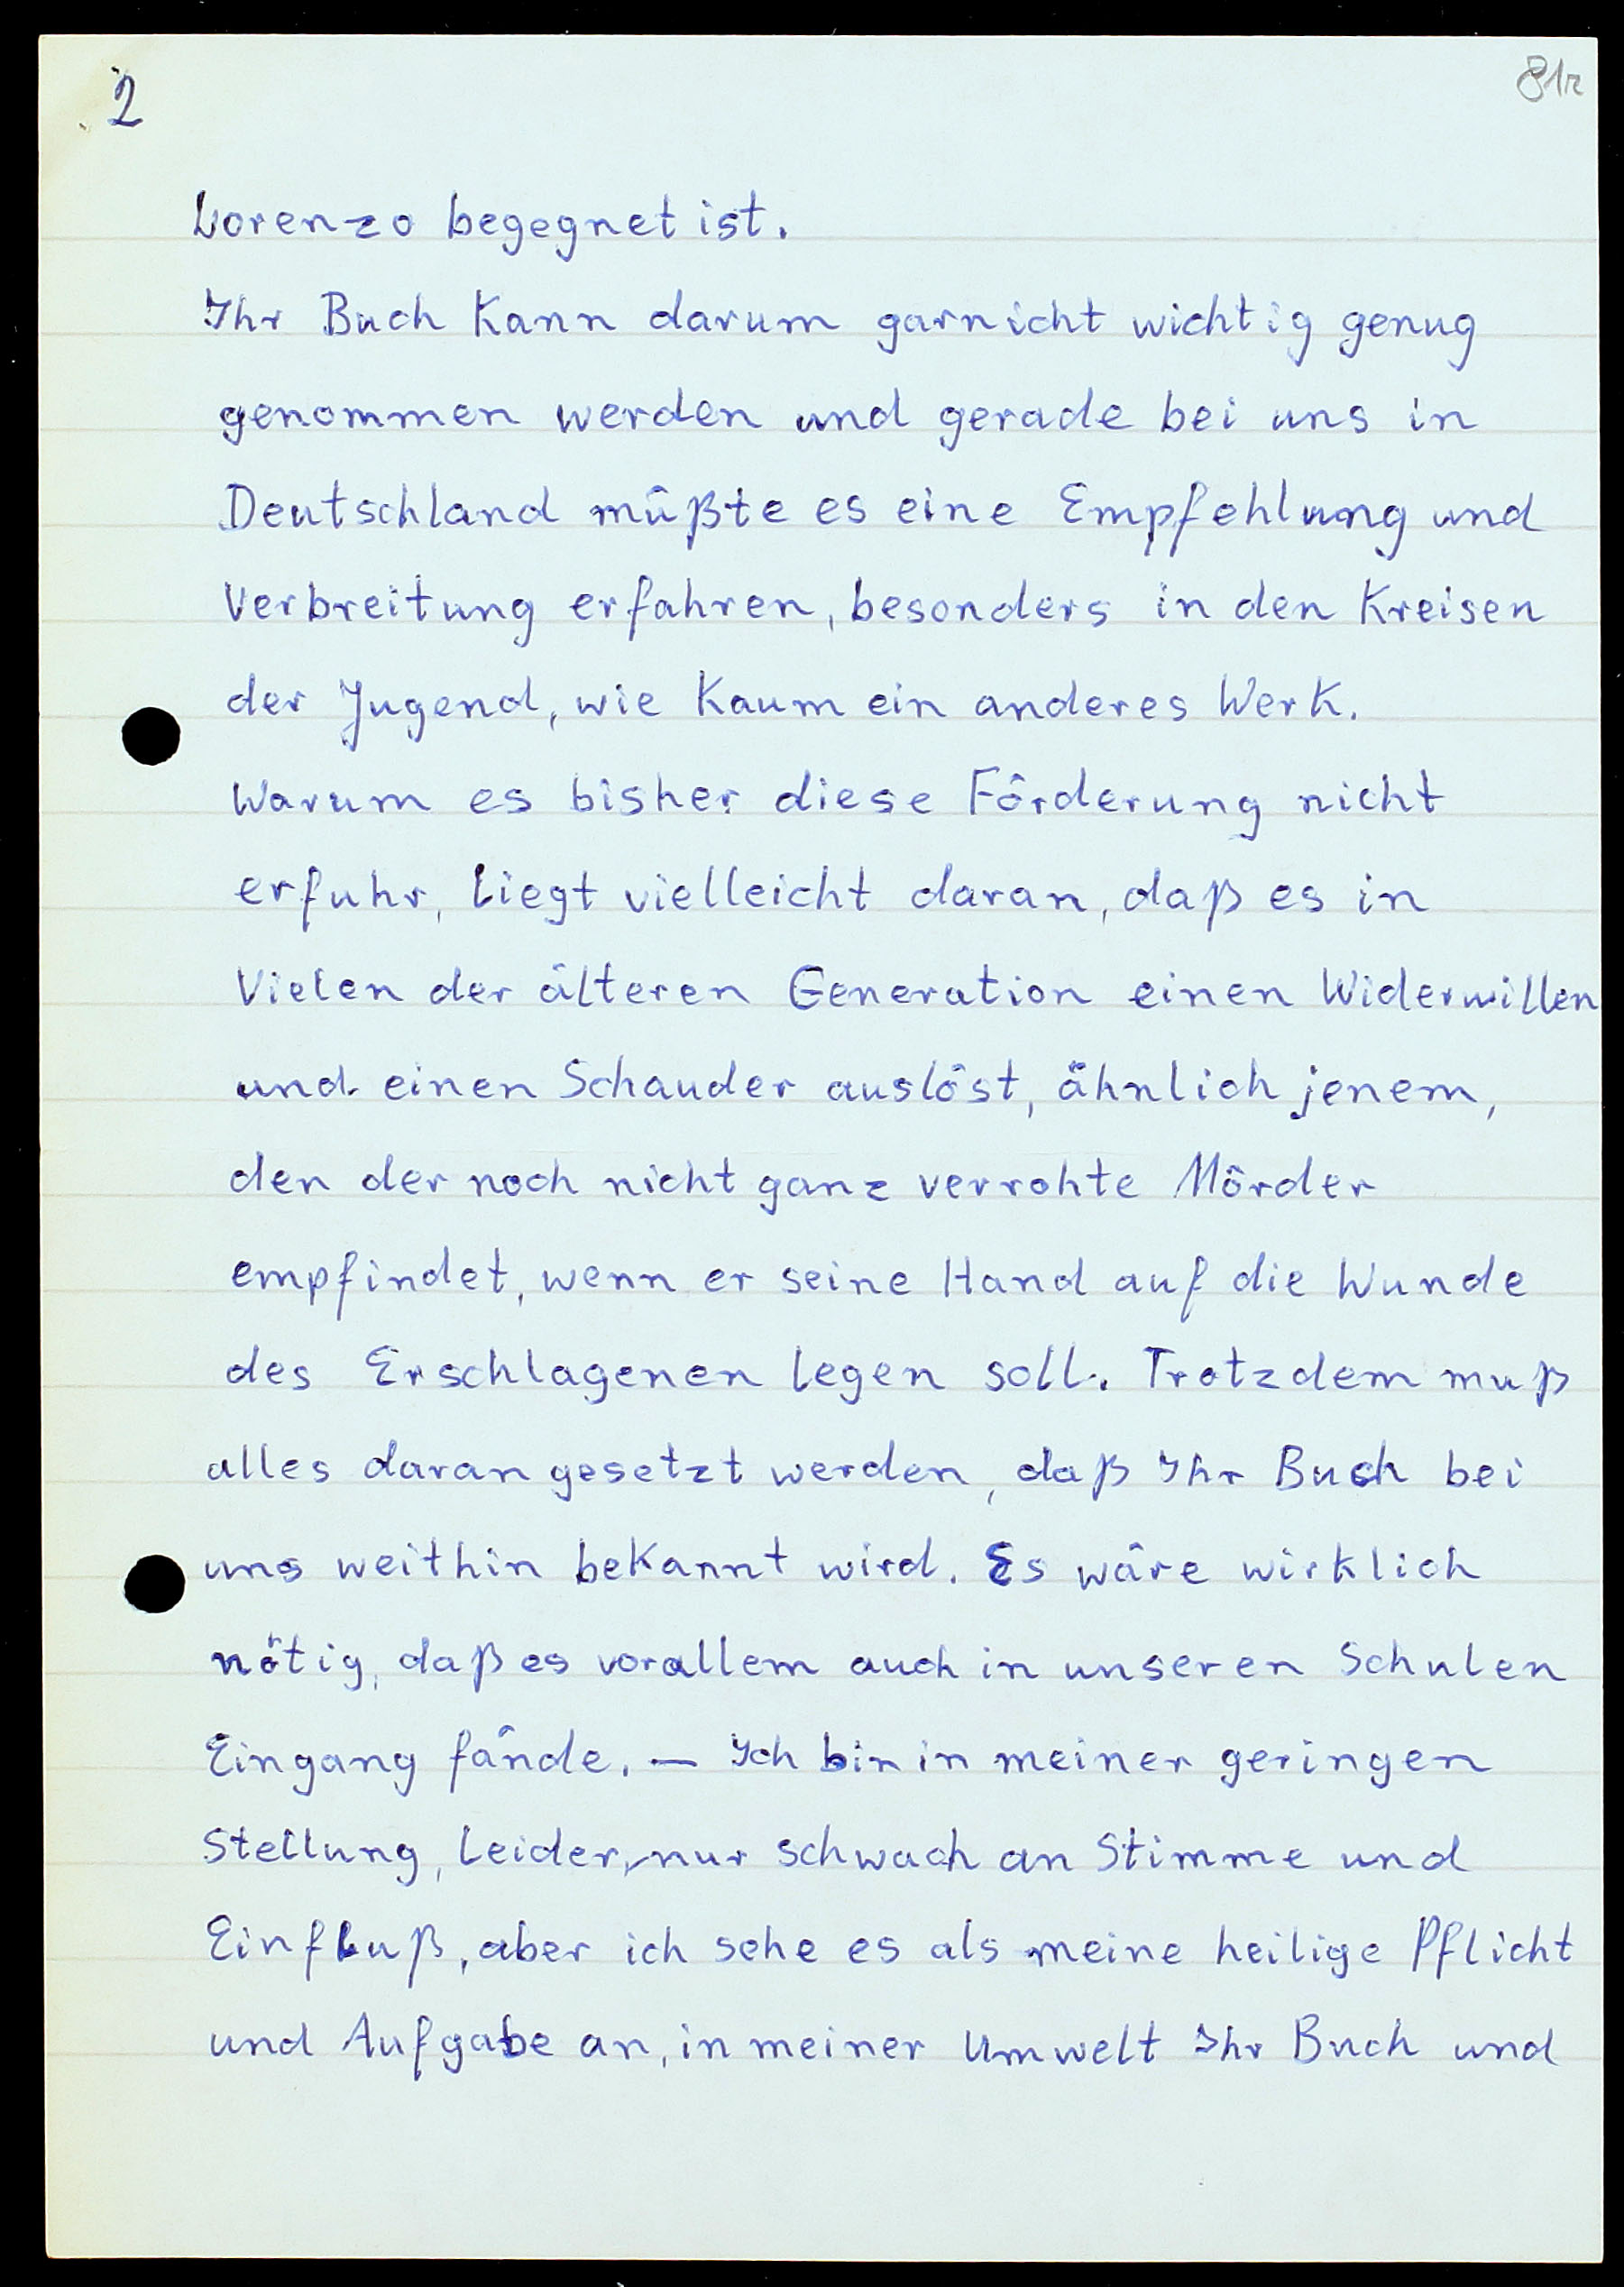 2
81r
Lorenzo begegnet ist.
Ihr Buch kann darum garnicht wichtig genug
genommen werden und gerade bei uns in
Deutschland müßte es eine Empfehlung und
Verbreitung erfahren, besonders in den Kreisen
der Jugend, wie kaum ein anderes Werk.
Warum es bisher diese Förderung nicht
erfuhr, liegt vielleicht daran, daß es in
Vielen der älteren Generation einen Widerwillen
und einen Schauder auslöst, ähnlich jenem,
den der noch nicht ganz verrohte Mörder
empfindet, wenn er seine Hand auf die Wunde
des Erschlagenen legen soll. Trotzdem muß
alles daran gesetzt werden, daß Ihr Buch bei
uns weithin bekannt wird. Es wäre wirklich
nötig, daß es vorallem auch in unseren Schulen
Eingang fände. — Ich bin in meiner geringen
Stellung, leider, nur schwach an Stimme und
Einfluß, aber ich sehe es als meine heilige Pflicht
und Aufgabe an, in meiner Umwelt Ihr Buch und